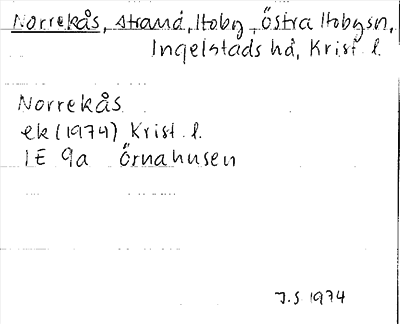 Norrekås, strand, Hoby, Östra Hobysn,
Ingelstads hd, Krist. l.
Norrekås
ek (1974) Krist. l.
1E 9a Örnahusen
J.S 1974